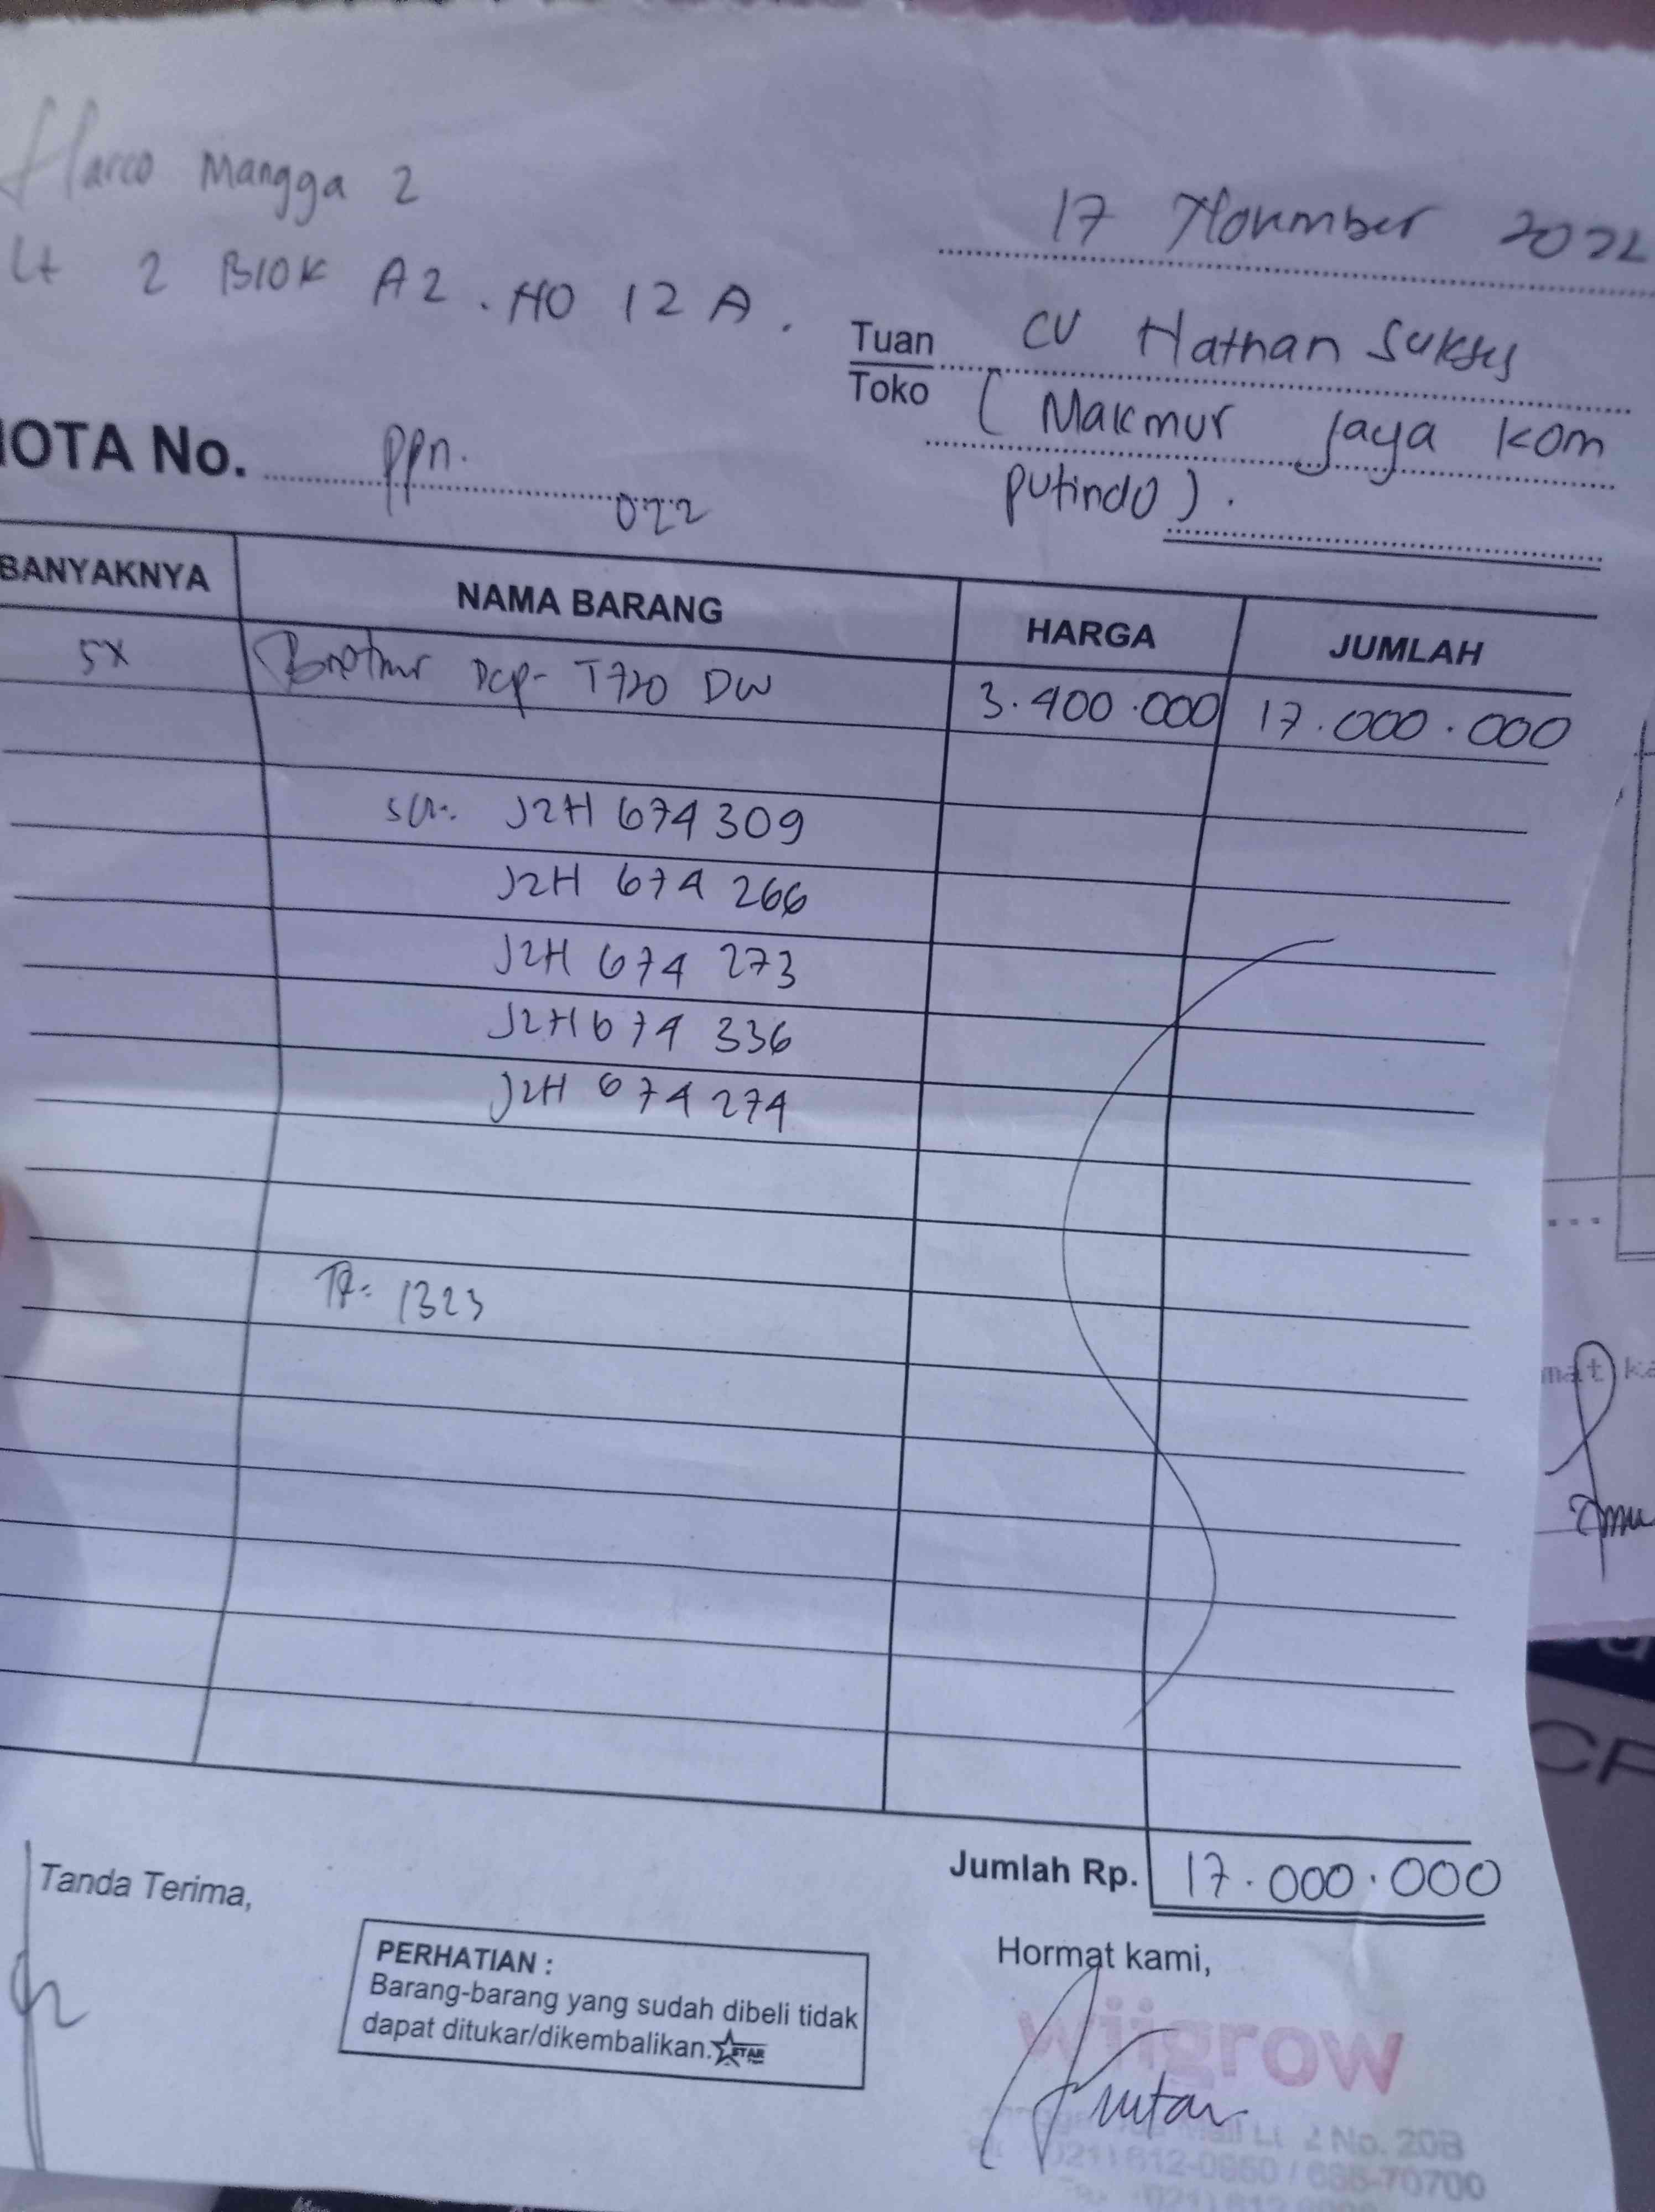 Harco Mangga 2
Lt 2 Blok A2 . NO 12 A .
17 November 2022
Tuan CV Nathan Sukses
Toko ( Makmur Jaya Kom
putindo ) .
NOTA No. ppn. 022
BANYAKNYA NAMA BARANG HARGA JUMLAH
5X Brother DCP- T720 DW 3.400.000 17.000.000
sn: J2H 674 309
J2H 674 266
J2H 674 273
J2H 674 336
J2H 674 274
1323
Jumlah Rp. 17.000.000
Tanda Terima,
Hormat kami,
PERHATIAN :
Barang-barang yang sudah dibeli tidak
dapat ditukar/dikembalikan. STAR
wiigrow
Mall Lt 2 No. 20B
(021) 612-0850 / 668-70700